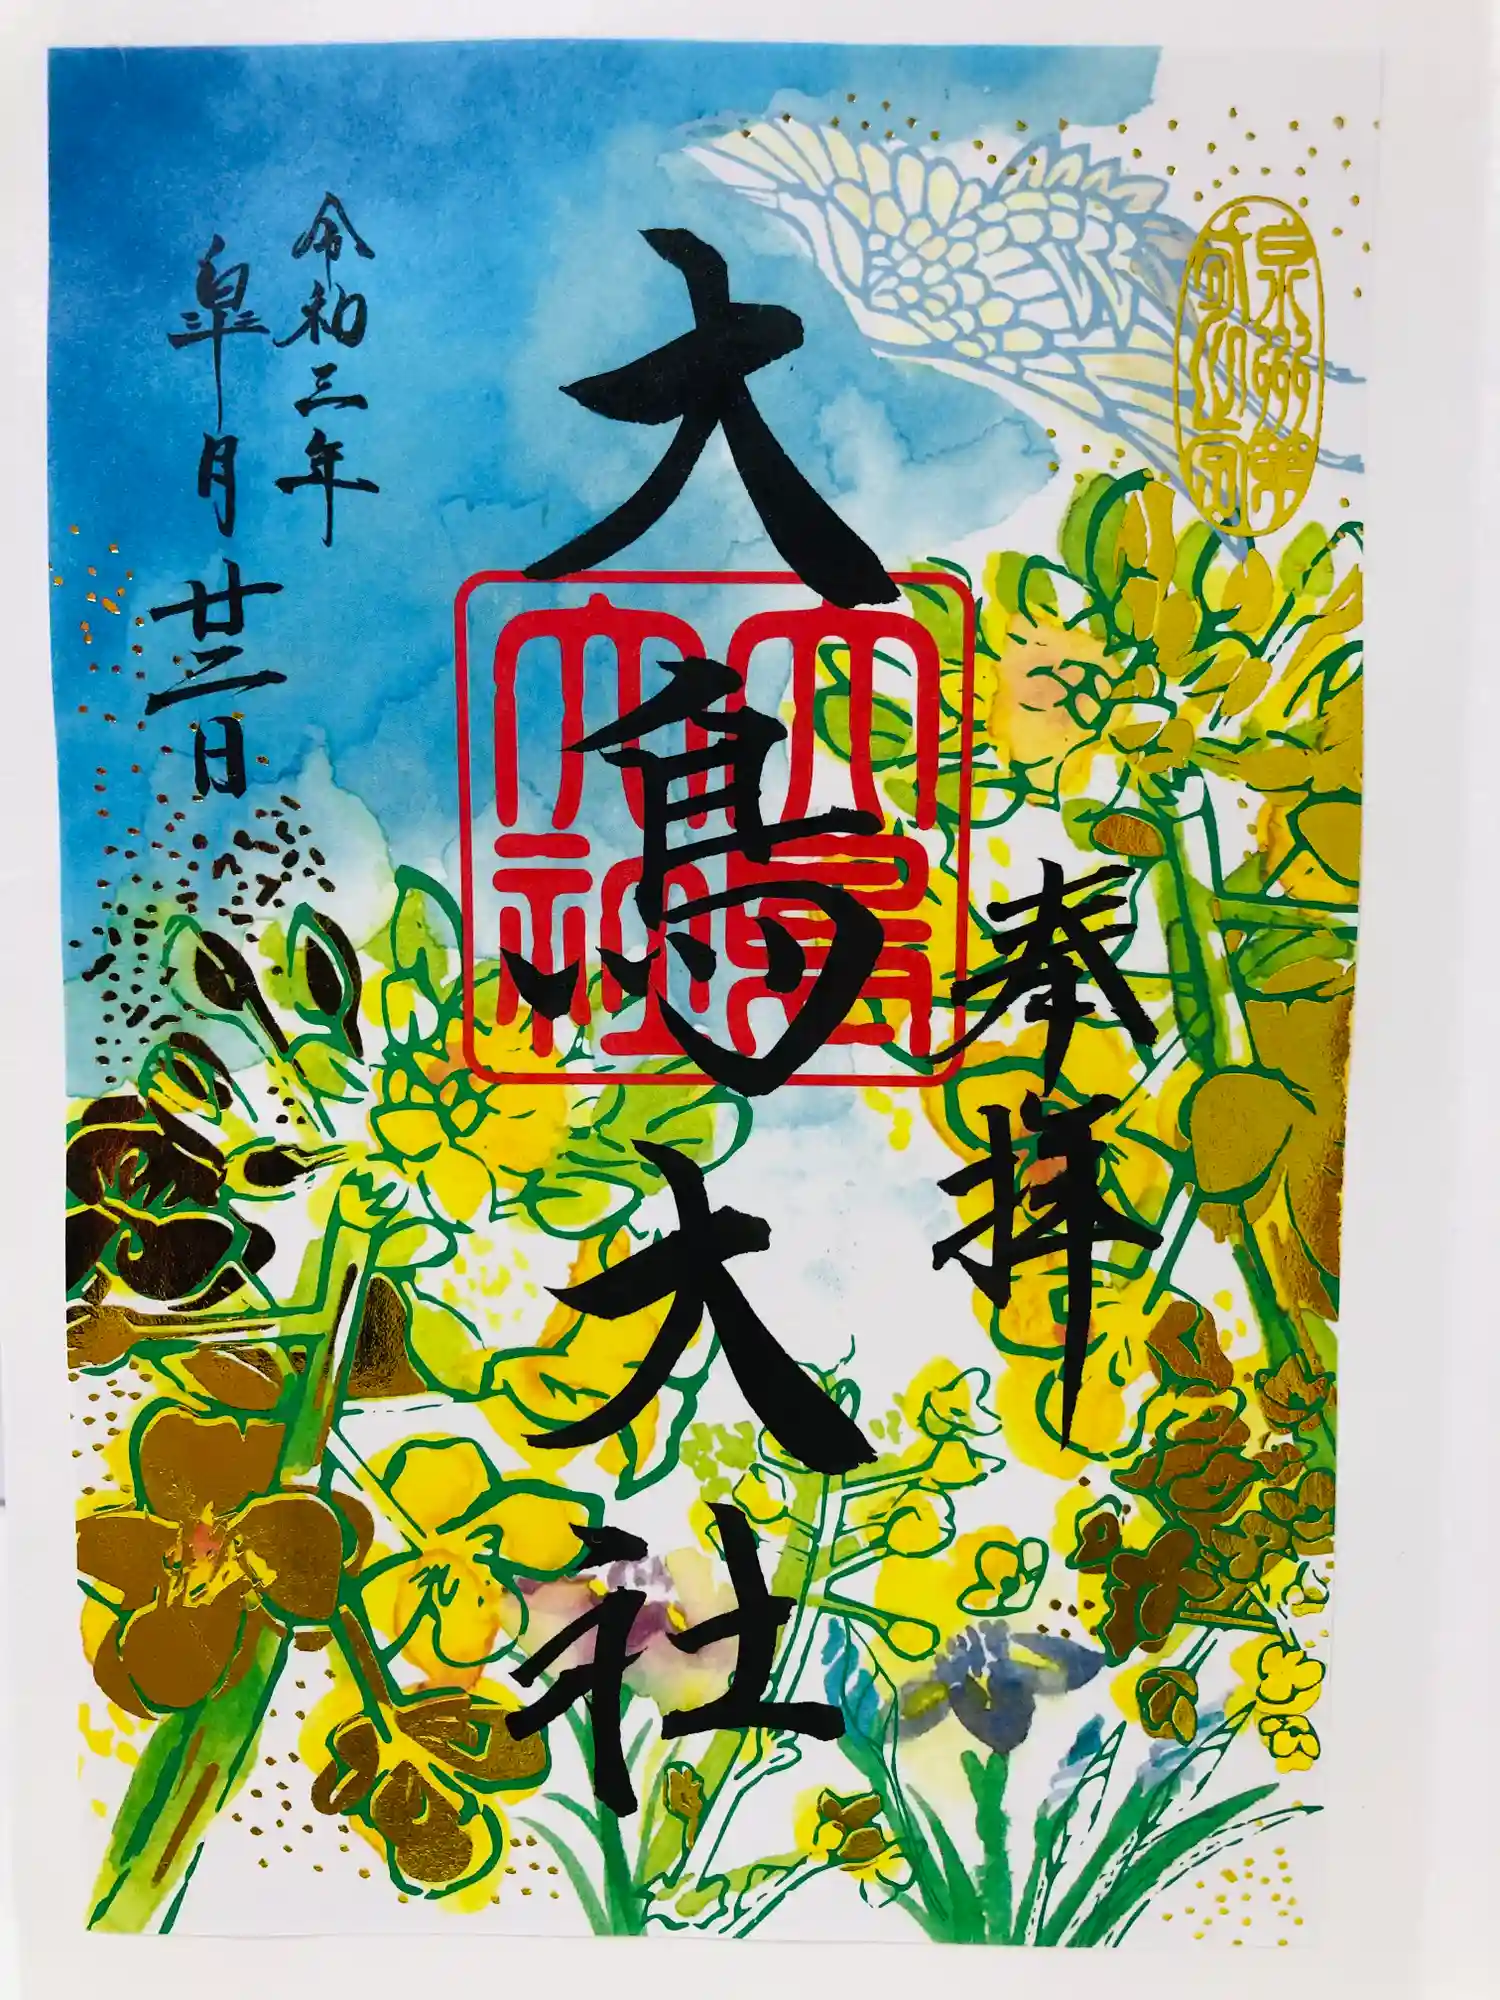 泉州第
奉拝
大鳥大社
大鳥
大社
令和三年
皐月廿二日